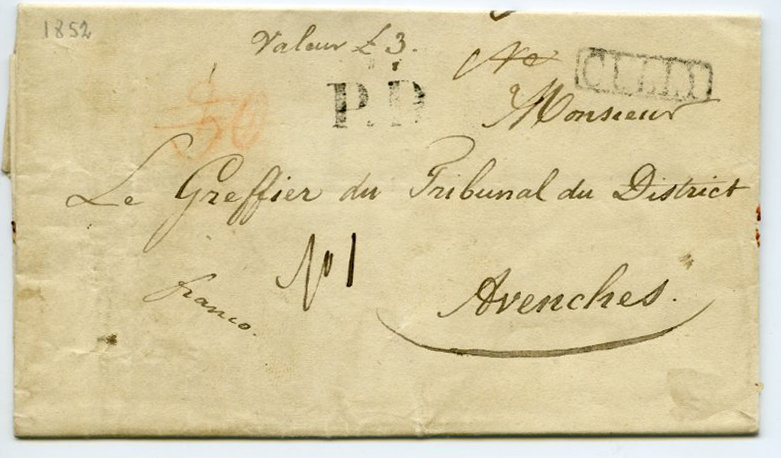 1852
Valeur £ 3.
P.D
CULLY
Monsieur
Le Greffier du Tribunal du District
Nº 1
Avenches.
franco.